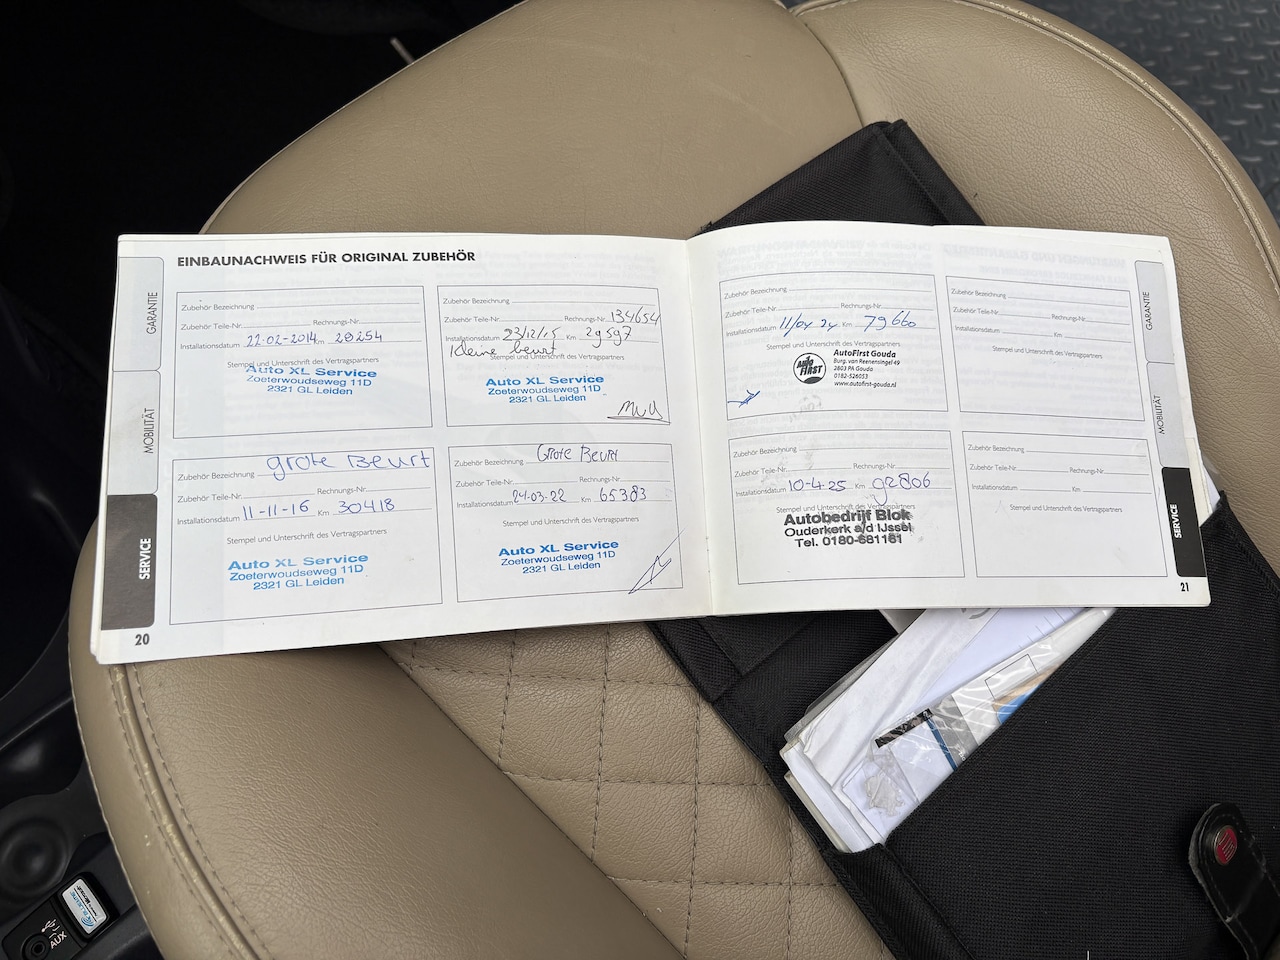 EINBAUNACHWEIS FÜR ORIGINAL ZUBEHÖR
GARANTIE
MOBILITÄT
SERVICE
20
Zubehör Bezeichnung
Zubehör Teile-Nr. Rechnungs-Nr.
Installationsdatum 22-02-2014 Km 28254
Stempel und Unterschrift des Vertragspartners
Auto XL Service
Zoeterwoudseweg 11D
2321 GL Leiden
Zubehör Bezeichnung
Zubehör Teile-Nr. Rechnungs-Nr. 134654
Installationsdatum 23/12/15 Km 29597
Kleine beurt
Stempel und Unterschrift des Vertragspartners
Auto XL Service
Zoeterwoudseweg 11D
2321 GL Leiden
Zubehör Bezeichnung grote Beurt
Zubehör Teile-Nr. Rechnungs-Nr.
Installationsdatum 11-11-16 Km 30418
Stempel und Unterschrift des Vertragspartners
Auto XL Service
Zoeterwoudseweg 11D
2321 GL Leiden
Zubehör Bezeichnung Grote Beurt
Zubehör Teile-Nr. Rechnungs-Nr.
Installationsdatum 24-03-22 Km 65383
Stempel und Unterschrift des Vertragspartners
Auto XL Service
Zoeterwoudseweg 11D
2321 GL Leiden
Zubehör Bezeichnung
Zubehör Teile-Nr. Rechnungs-Nr.
Installationsdatum 11/04 24 Km 79660
Stempel und Unterschrift des Vertragspartners
AUTO FIRST
AutoFirst Gouda
Burg. van Reenensingel 49
2803 PA Gouda
0182-526053
www.autofirst-gouda.nl
Zubehör Bezeichnung
Zubehör Teile-Nr. Rechnungs-Nr.
Installationsdatum Km
Stempel und Unterschrift des Vertragspartners
Zubehör Bezeichnung
Zubehör Teile-Nr. Rechnungs-Nr.
Installationsdatum 10-4-25 Km 92806
Stempel und Unterschrift des Vertragspartners
Autobedrijf Blok
Ouderkerk a/d IJssel
Tel. 0180-681161
Zubehör Bezeichnung
Zubehör Teile-Nr. Rechnungs-Nr.
Installationsdatum Km
Stempel und Unterschrift des Vertragspartners
GARANTIE
MOBILITÄT
SERVICE
21
BLUE&ME
AUX